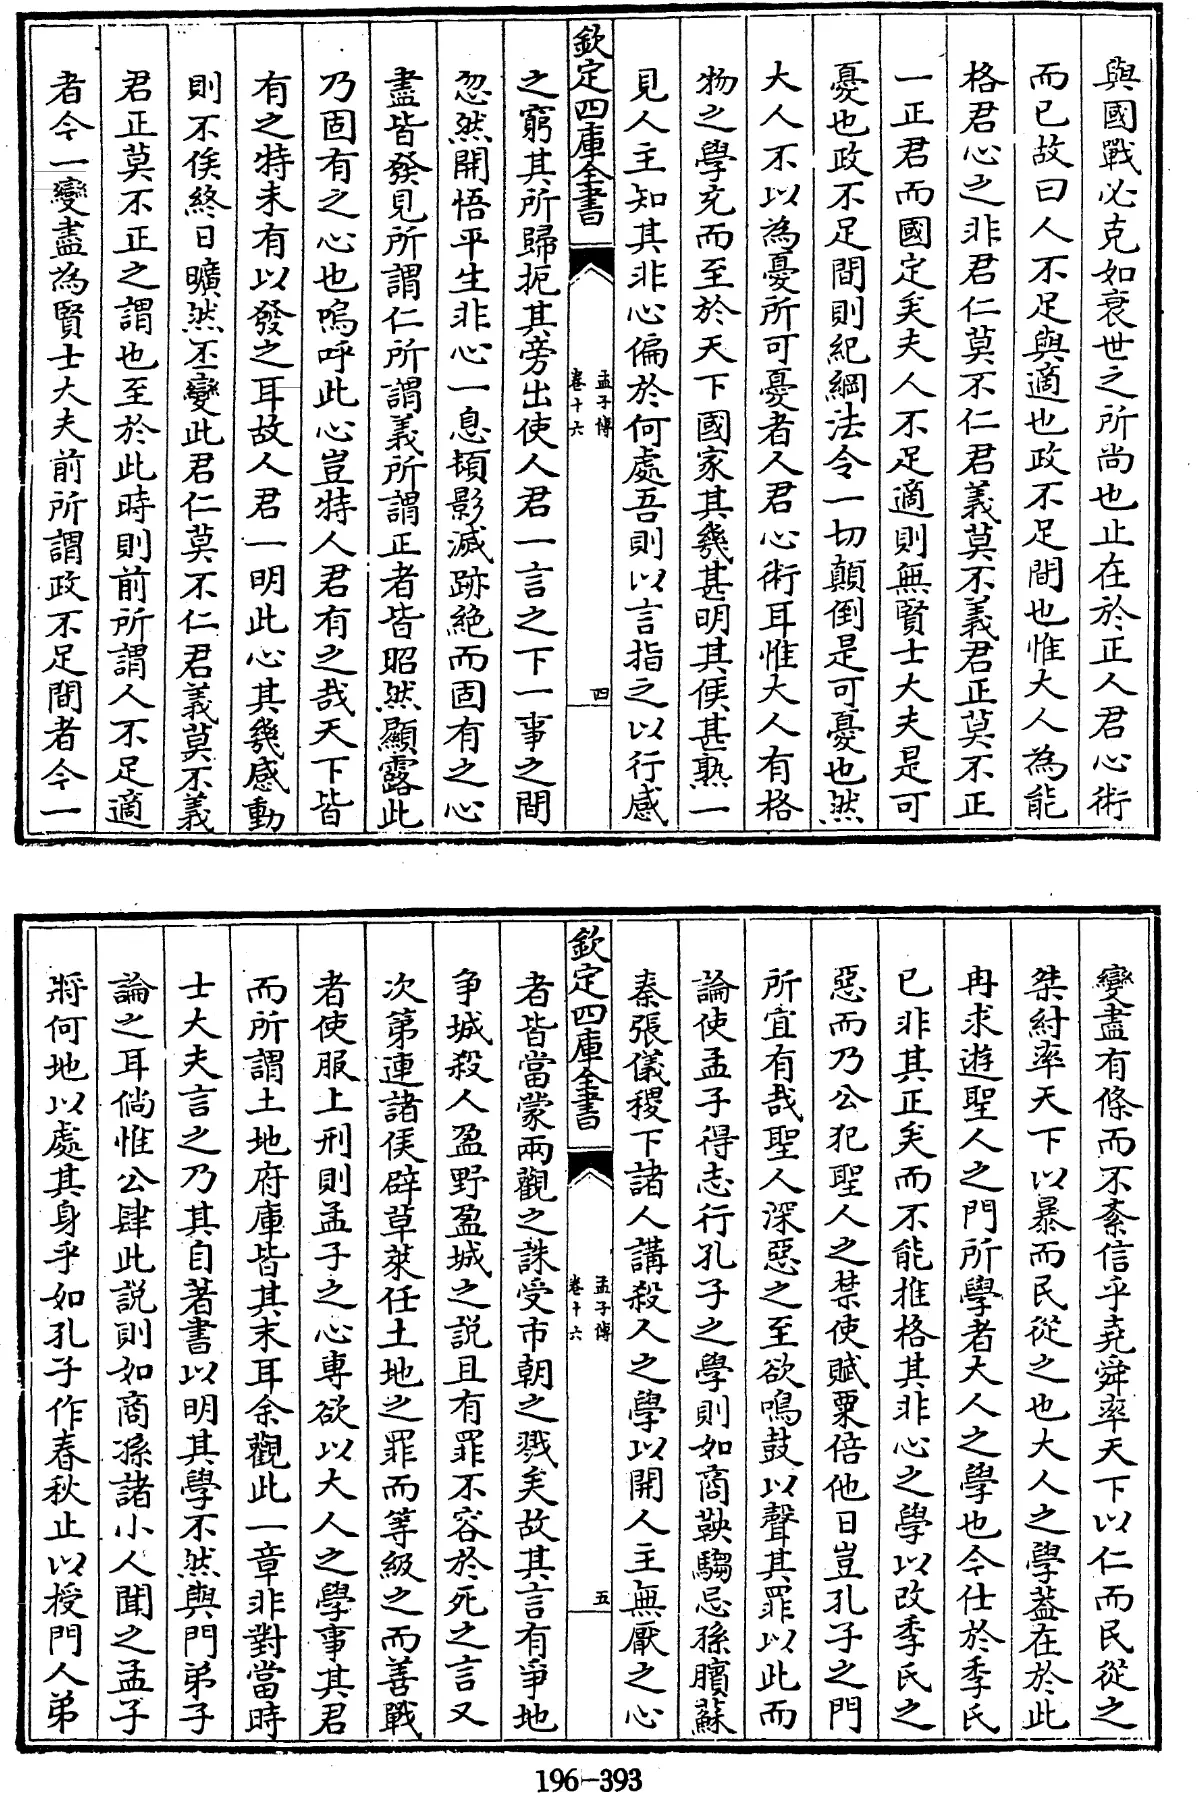 與國戰必克如衰世之所尚也止在於正人君心術
而已故曰人不足與適也政不足間也惟大人為能
格君心之非君仁莫不仁君義莫不義君正莫不正
一正君而國定矣夫人不足適則無賢士大夫是可
憂也政不足間則紀綱法令一切顛倒是可憂也然
大人不以為憂所可憂者人君心術耳惟大人有格
物之學充而至於天下國家其幾甚明其候甚熟一
見人主知其非心偏於何處吾則以言指之以行感
欽定四庫全書
孟子傳
卷十六
四
之窮其所歸扼其旁出使人君一言之下一事之間
忽然開悟平生非心一息頓影滅跡絶而固有之心
盡皆發見所謂仁所謂義所謂正者皆昭然顯露此
乃固有之心也嗚呼此心豈特人君有之哉天下皆
有之特未有以發之耳故人君一明此心其幾感動
則不俟終日曠然丕變此君仁莫不仁君義莫不義
君正莫不正之謂也至於此時則前所謂人不足適
者今一變盡為賢士大夫前所謂政不足間者今一
變盡有條而不紊信乎堯舜率天下以仁而民從之
桀紂率天下以暴而民從之也大人之學葢在於此
冉求遊聖人之門所學者大人之學也今仕於季氏
已非其正矣而不能推格其非心之學以改季氏之
惡而乃公犯聖人之禁使賦粟倍他日豈孔子之門
所宜有哉聖人深惡之至欲鳴鼓以聲其罪以此而
論使孟子得志行孔子之學則如商鞅騶忌孫臏蘇
秦張儀稷下諸人講殺人之學以開人主無厭之心
欽定四庫全書
孟子傳
卷十六
五
者皆當蒙兩觀之誅受市朝之戮矣故其言有爭地
争城殺人盈野盈城之説且有罪不容於死之言又
次第連諸侯辟草萊任土地之罪而等級之而善戰
者使服上刑則孟子之心專欲以大人之學事其君
而所謂土地府庫皆其末耳余觀此一章非對當時
士大夫言之乃其自著書以明其學不然與門弟子
論之耳倘惟公肆此説則如商孫諸小人聞之孟子
將何地以處其身乎如孔子作春秋止以授門人弟
196-393